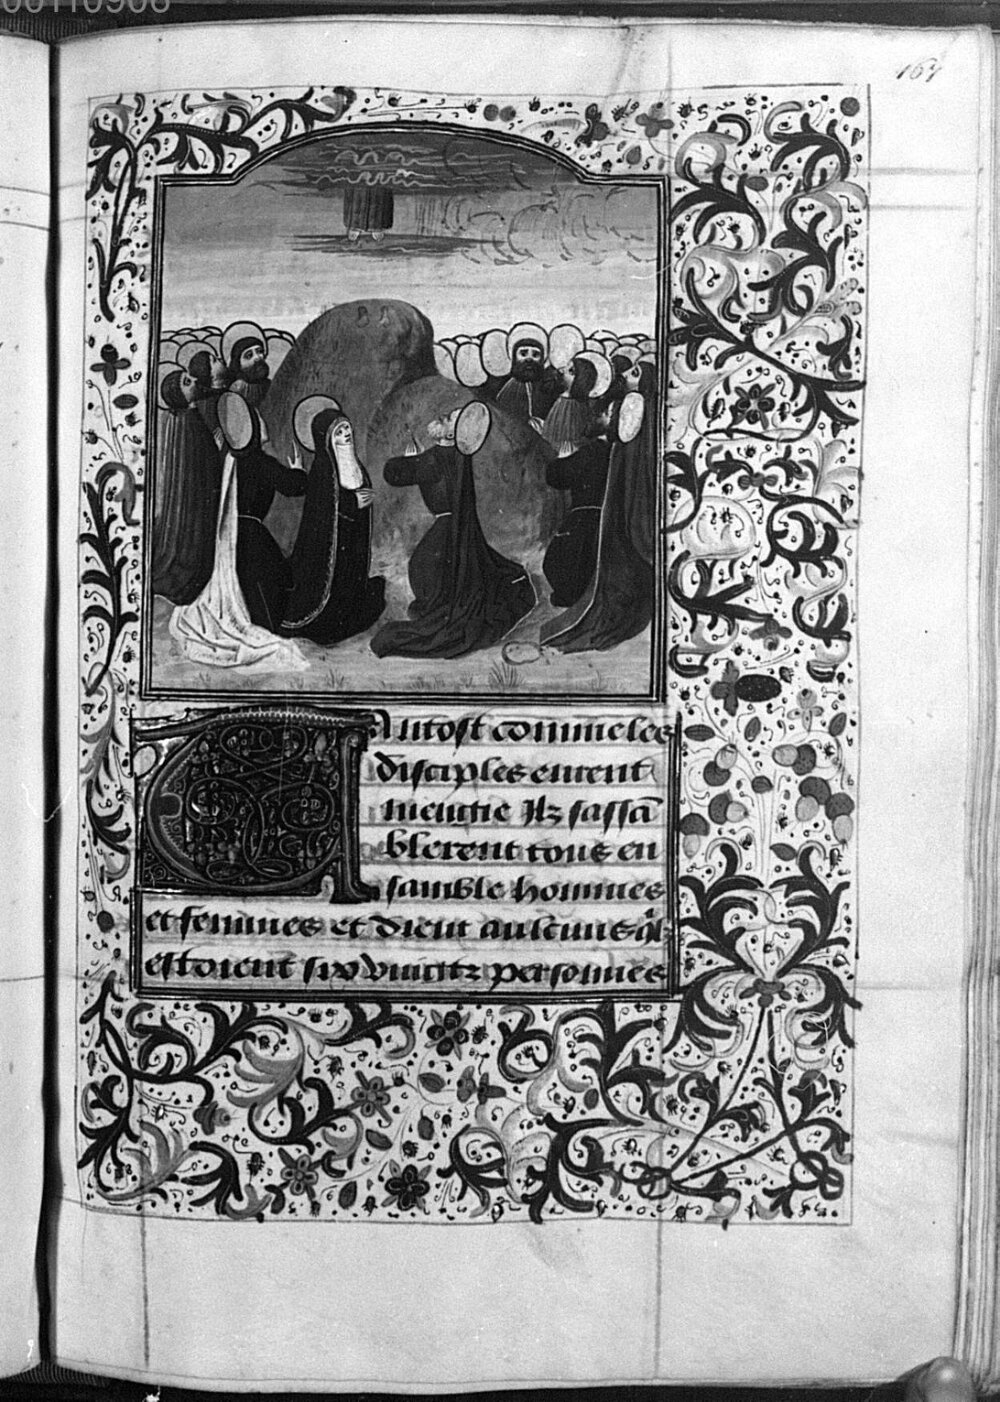 00110908
167
Tantost comme les
disciples eurent
mengie Ilz sassã
blerent tous en
samble hommes
et femmes et dient aulcuns qlz
estoient six vingtz personnes